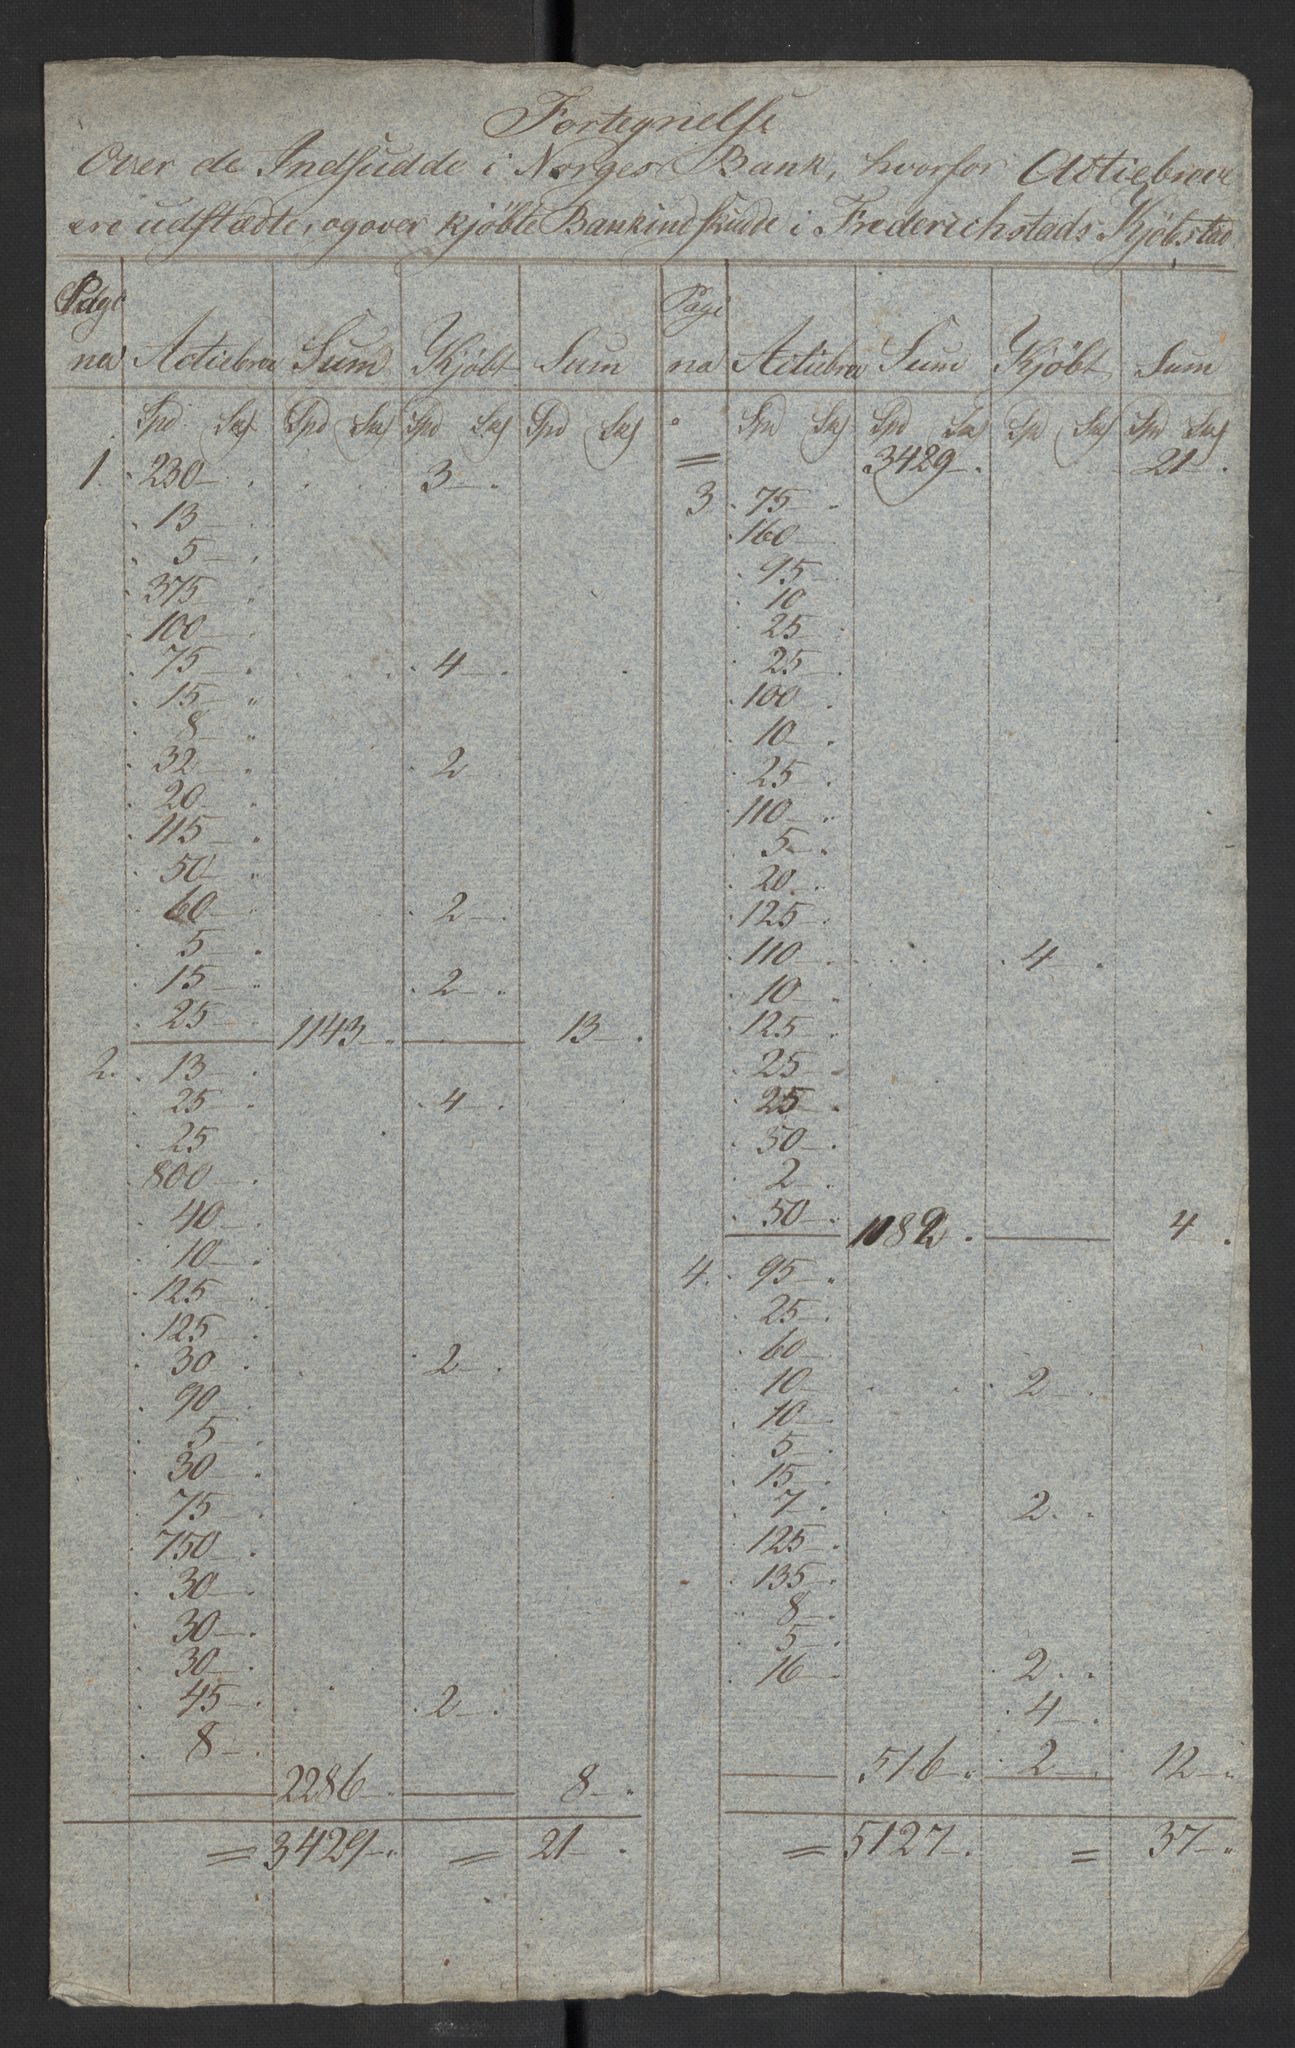 Fortegnelse
Over de Indskudde i Norges Bank, hvorfor Actiebreve
ere udstædte, og over kjöbte Bankindskudde i Frederichstads Kjöbstad
Pagi Pagi
na Actiebrev Sum Kjöbt Sum na Actiebrev Sum Kjöbt Sum
Spd Sks Spd Sks Spd Sks Spd Sks Spd Sks Spd Sks Spd Sks Spd Sks
1. 230 3 = 3429 21
13 3 75
5 160
375 95
100 10
75 4 25
15 25
8 100
32 2 10
20 25
115 110
50 5
60 2 20
5 125
15 2 110 4
25 1143 13 10
2. 13 125
25 4 25
25 25
800 50
40 2
10 50 1082 4
125 4. 95
125 25
30 2 60
90 10 2
5 10
30 5
75 15
750 7 2
30 125
30 135
30 8
45 2 5
8 16 2
4
2286 8 516 2 12
= 3429 = 21 = 5127 = 37